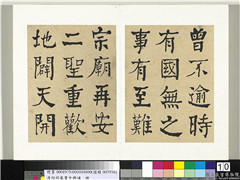 曾不逾時
有國無之
事有至難
宗廟再安
二聖重歡
地闢天開
10